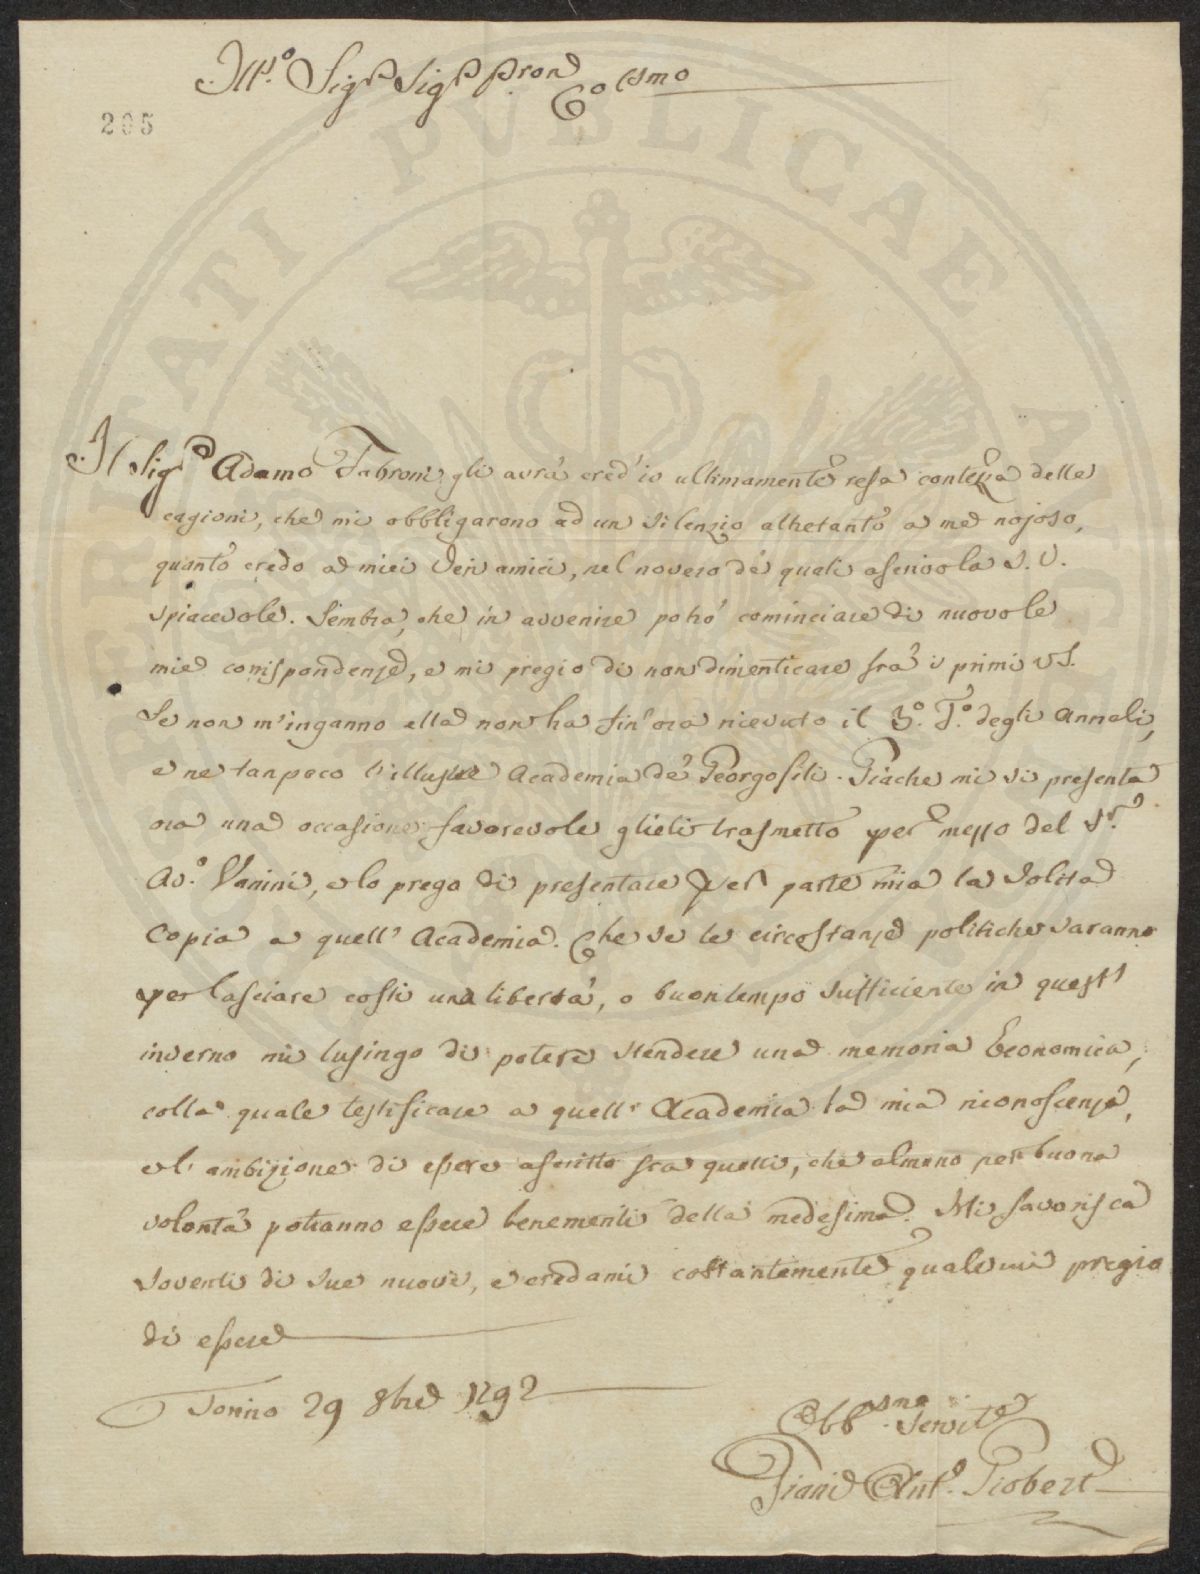 Ill.o Sig.r Sig.r Pron Colsmo
205
PROSPERITATI PUBLICAE AUGENDAE
Il Sig.r Adamo Fabroni gli avrà cred'io ultimamente resa contezza delle
cagioni, che mi obbligarono ad un silenzio altretanto a me nojoso,
quanto credo a miei veri amici, nel novero de' quali ascrivo la S. V.
spiacevole. Sembra, che in avvenire potrò cominciare di nuovo le
mie corrispondenze, e mi pregio di non dimenticare fra' i primi V S.
Se non m'inganno ella non ha fin' ora ricevuto il 3.o T.o degli Annali,
e ne tanpoco l'illustre Academia de' Georgofili. Giache mi si presenta
ora una occasione favorevole glieli trasmetto per mezzo del S.r
Av.o Vanini, e lo prego di presentare per parte mia la solita
Copia a quell' Academia. Che se le circostanze politiche saranno
per lasciare costì una libertà, o buon tempo sufficiente in quest'
inverno mi lusingo di potere stendere una memoria Economica,
colla quale testificare a quell' Academia la mia riconoscenza,
e l' ambizione di essere ascritto fra quelli, che almeno per buona
volontà potranno essere benemeriti della medesima. Mi favorisca
soventi di sue nuove, e credami costantemente quale mi pregio
di essere
Torino 29 8bre 1792
Obb.smo Servit.e
Gioan Ant.o Giobert